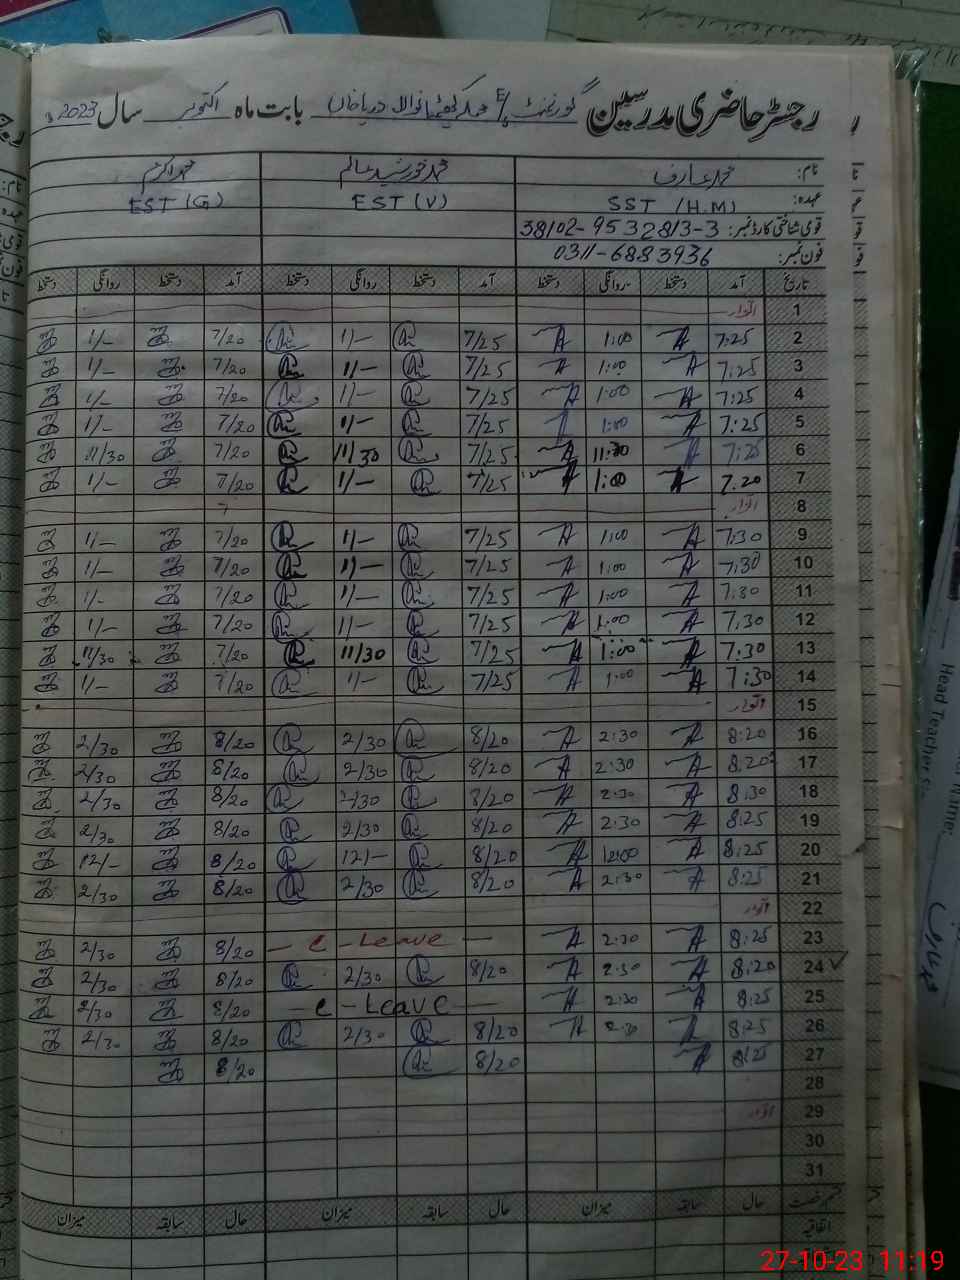 رجسٹر حاضری مدرسین گورنمنٹ E/S بابت ماہ اکتوبر سال 2023ء
نام: محمد عارف محمد خورشید عالم محمد اکرم
عہدہ: SST (H.M) EST (V) EST (G)
قومی شناختی کارڈ نمبر: 38102-9532813-3
فون نمبر: 0311-6883936
تاریخ آمد دستخط روانگی دستخط آمد دستخط روانگی دستخط آمد دستخط روانگی دستخط
1 اتوار
2 7:25 1:00 7/25 1/- 7/20 1/-
3 7:25 1:00 7/25 1/- 7/20 1/-
4 7:25 1:00 7/25 1/- 7/20 1/-
5 7:25 1:00 7/25 1/- 7/20 1/-
6 7:25 11:30 7/25 11/30 7/20 11/30
7 7.20 1:00 7/25 1/- 7/20 1/-
8 اتوار
9 7:30 1:00 7/25 1/- 7/20 1/-
10 7:30 1:00 7/25 1/- 7/20 1/-
11 7:30 1:00 7/25 1/- 7/20 1/-
12 7:30 1:00 7/25 1/- 7/20 1/-
13 7:30 1:00 7/25 11/30 7/20 11/30
14 7:30 1:00 7/25 1/- 7/20 1/-
15 اتوار
16 8:20 2:30 8/20 2/30 8/20 2/30
17 8:20 2:30 8/20 2/30 8/20 2/30
18 8:30 2:30 8/20 2/30 8/20 2/30
19 8:25 2:30 8/20 2/30 8/20 2/30
20 8:25 12:00 8/20 12/- 8/20 12/-
21 8:25 2:30 8/20 2/30 8/20 2/30
22 اتوار
23 8:25 2:30 — C - Leave — 8/20 2/30
24 8:20 2:30 8/20 2/30 8/20 2/30
25 8:25 2:30 — C - Leave — 8/20 2/30
26 8:25 2:30 8/20 2/30 8/20 2/30
27 8:25 8/20 8/20
28
29 اتوار
30
31
قسم رخصت حال سابقہ میزان حال سابقہ میزان حال سابقہ میزان
اتفاقیہ
Head Teacher's
Name:
27-10-23 11:19